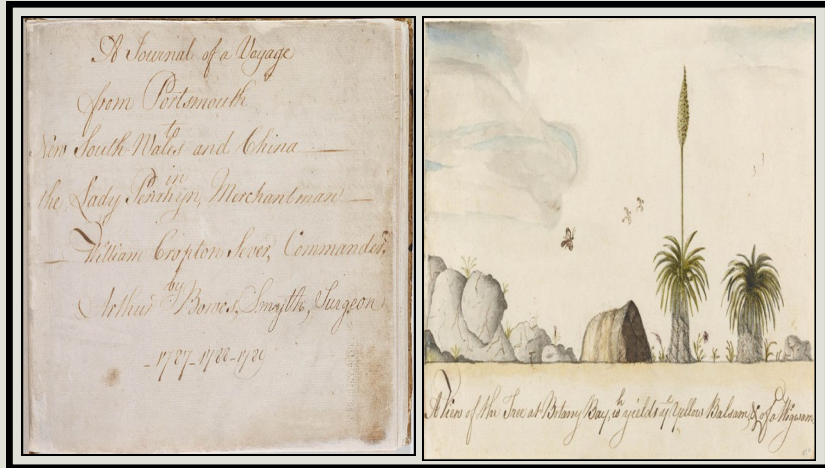 A Journal of a Voyage
from Portsmouth
to
New South Wales and China
in
the Lady Penrhyn, Merchantman
William Cropton Sever, Commander,
by
Arthur Bowes Smyth, Surgeon
-1787-1788-1789
A View of the Tree at Botany Bay, wh yields ye Yellow Balsam, & of a Wigwam